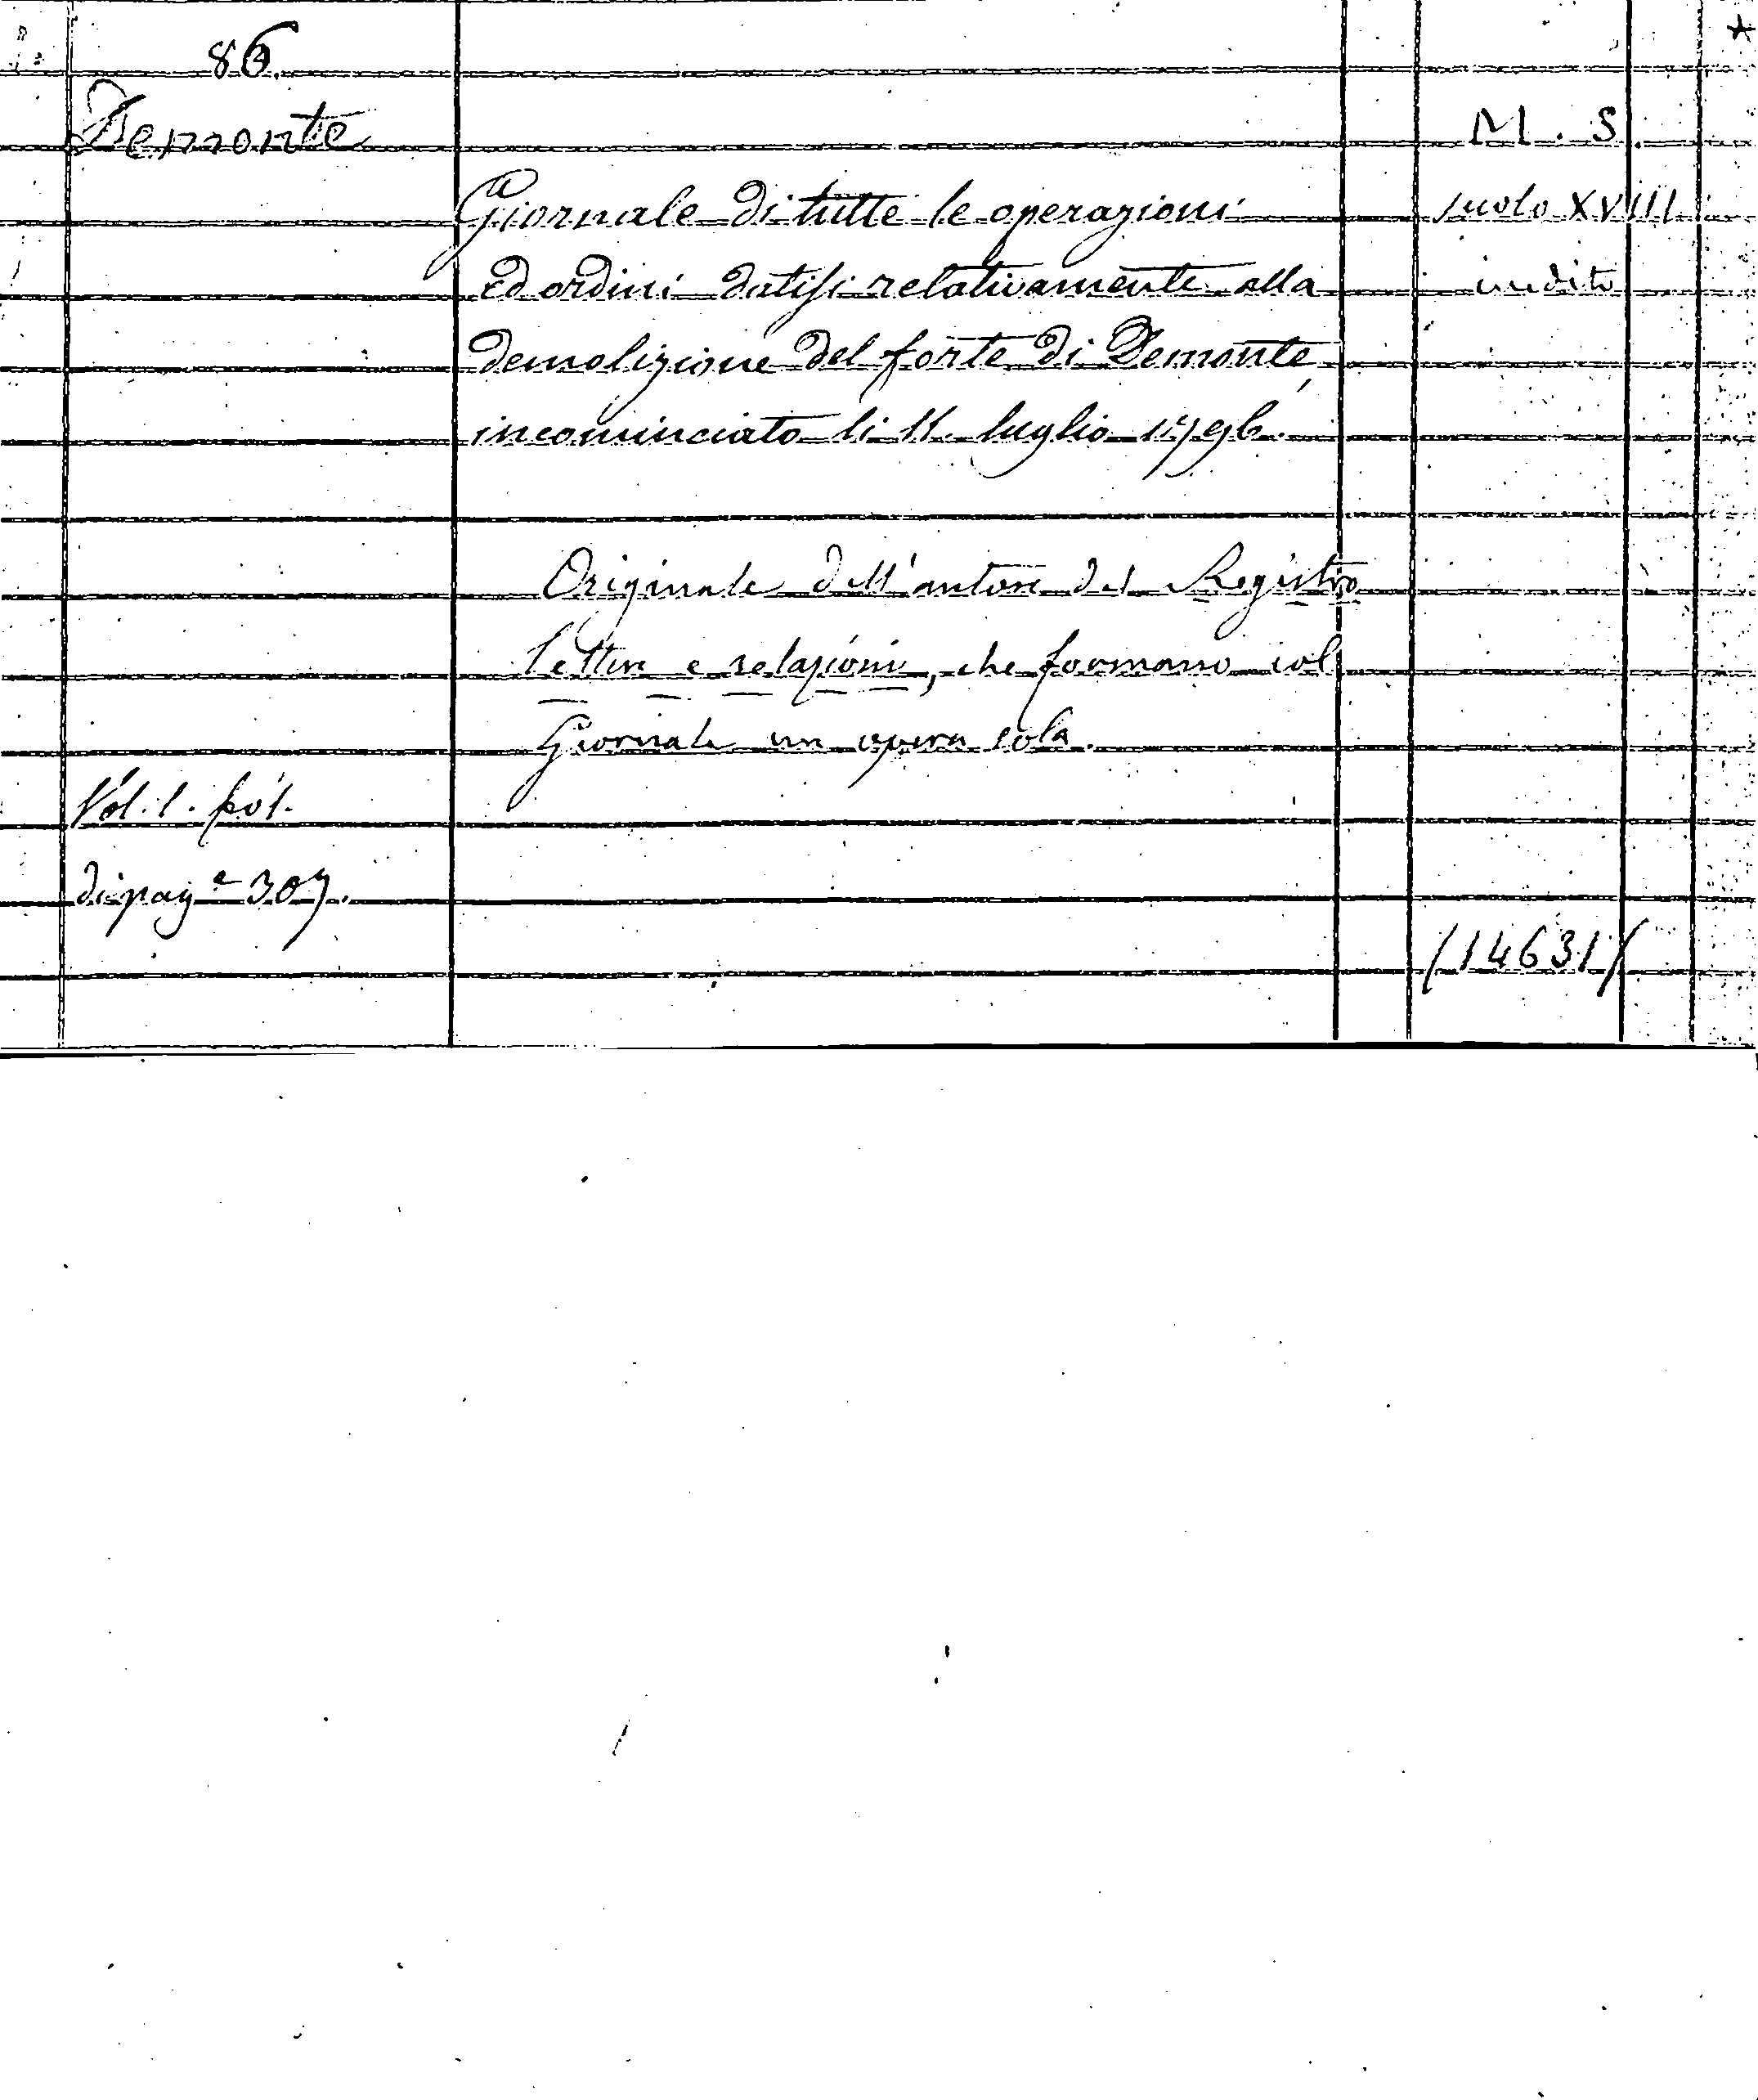 86.
Demonte
M. S.
Giornale di tutte le operazioni
secolo XVIII
ed ordini datisi relativamente alla
inedito
demolizione del forte di Demonte,
incominciato li 11. luglio 1796.
Originale dell'autore del Registro
lettere e relazioni, che formano col
Giornale un opera sola.
Vol. 1. fol.
di pag.e 307.
(14631)